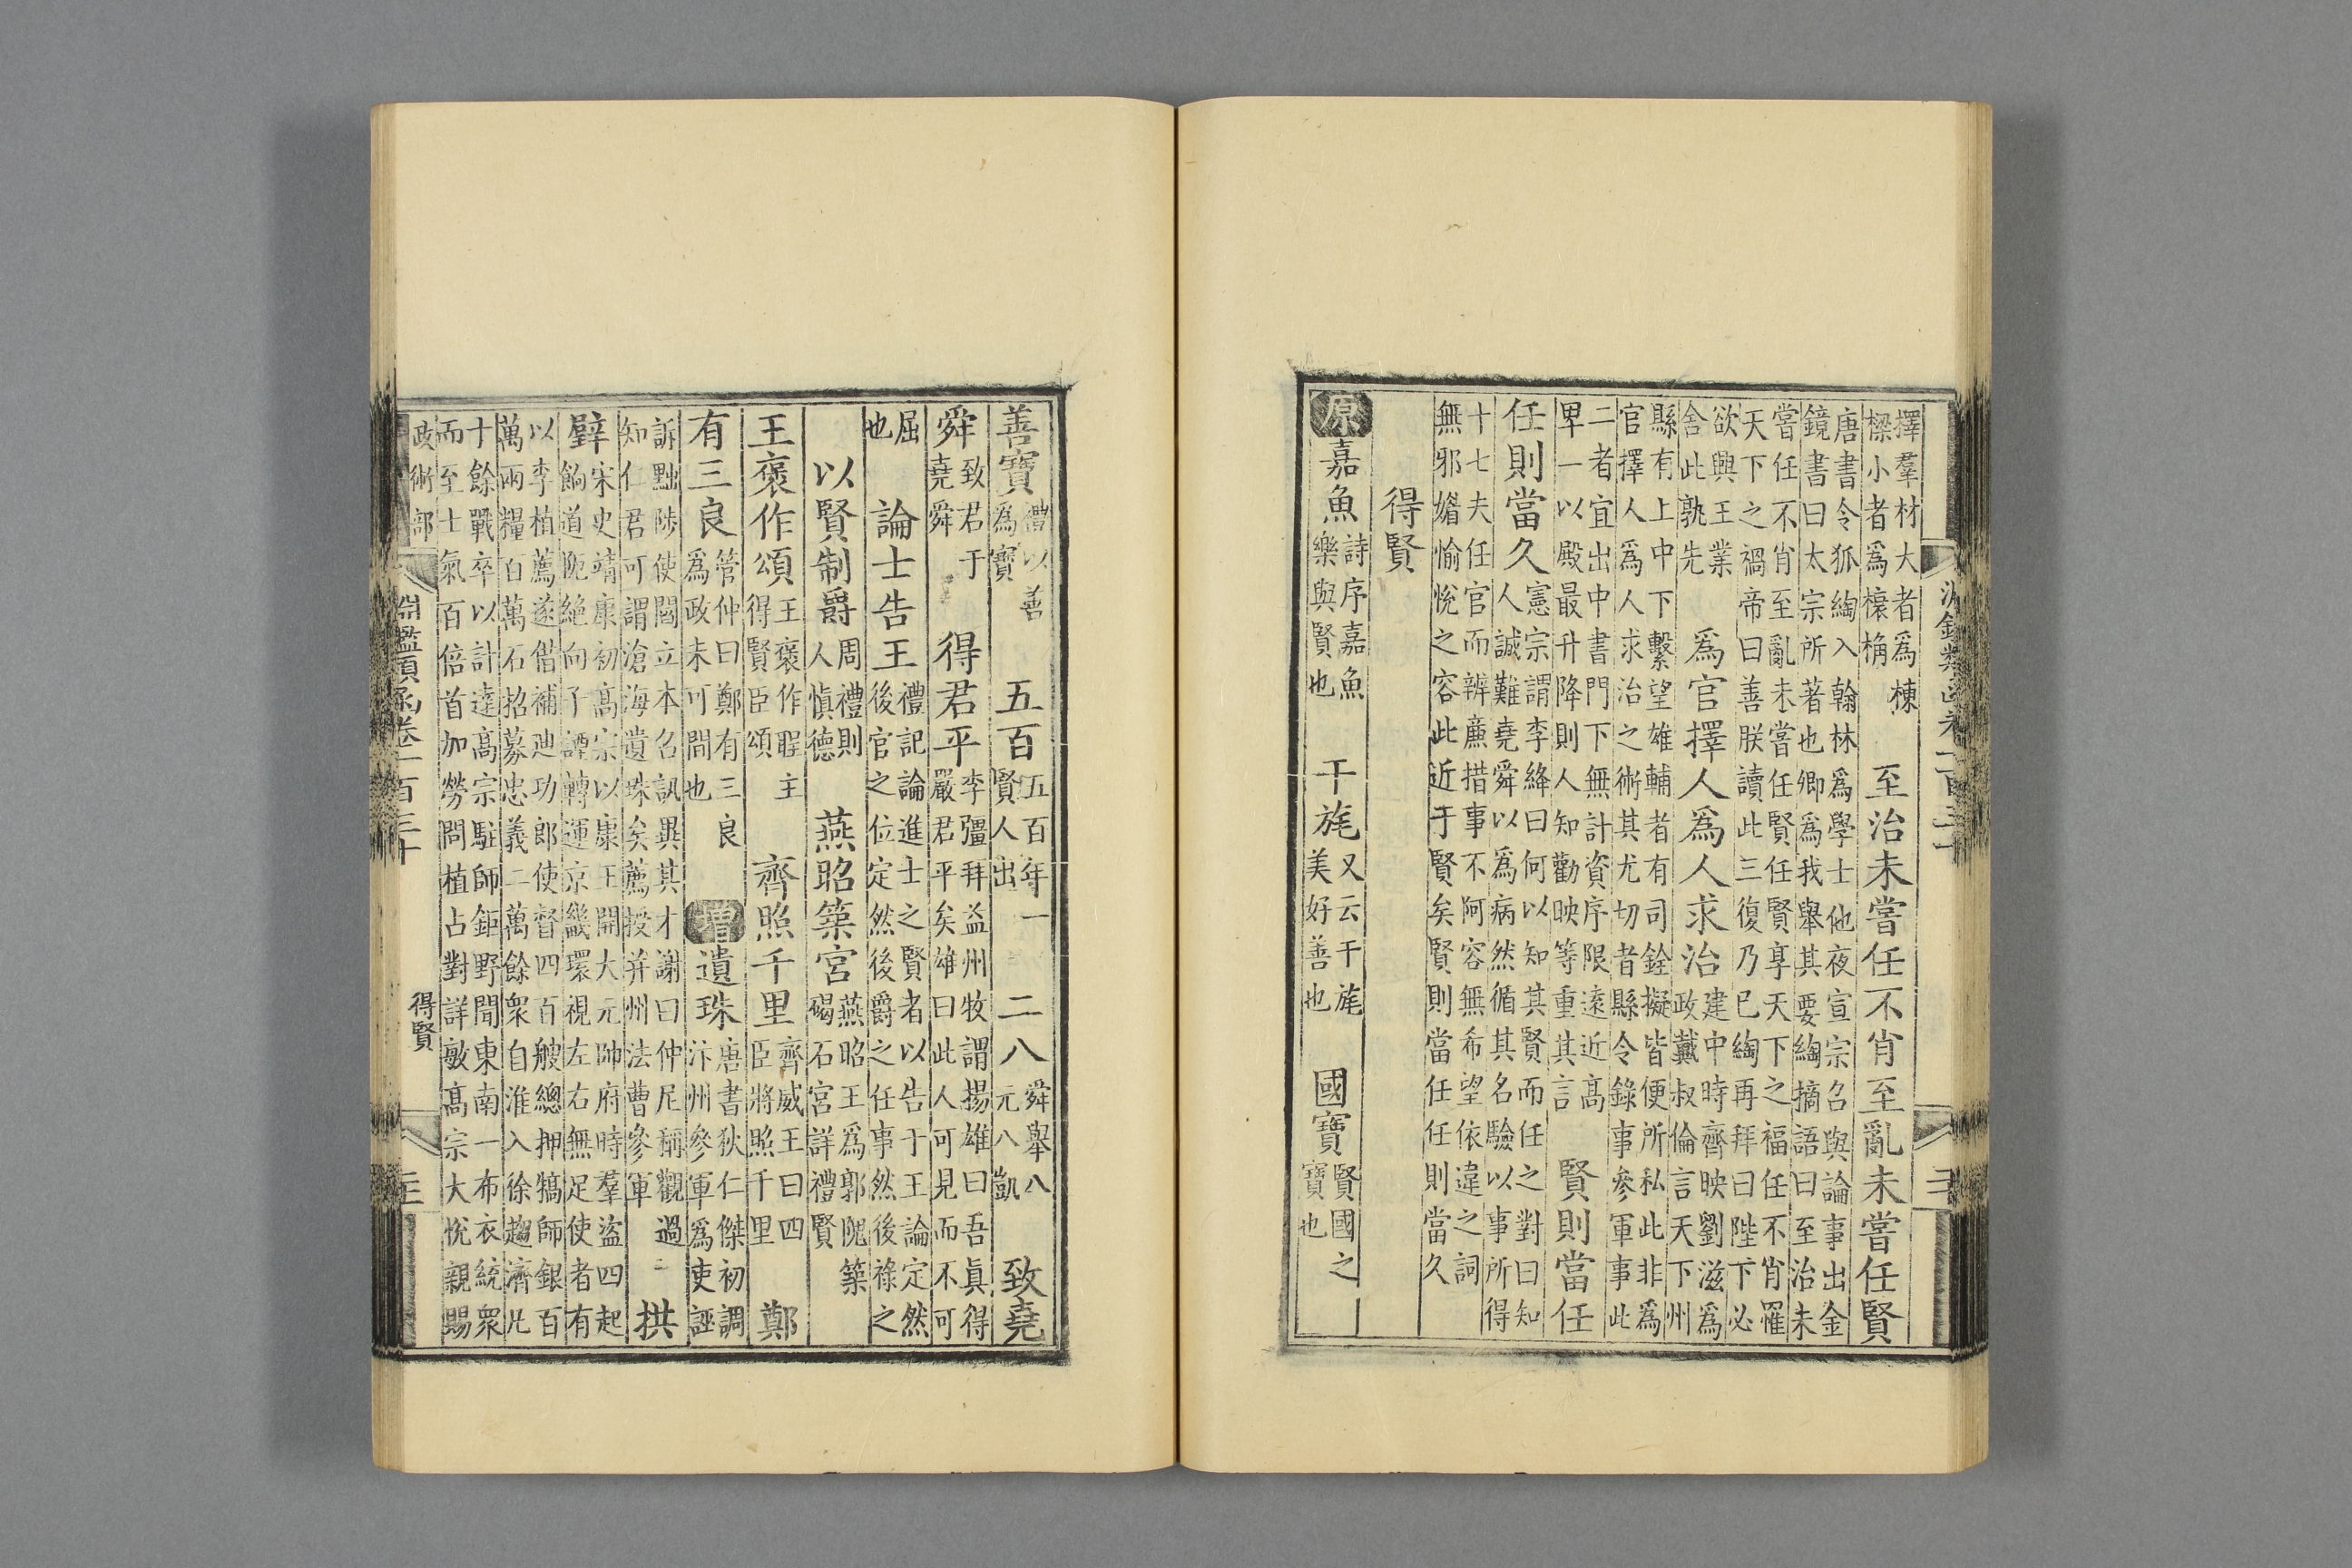 擇羣材大者爲棟
樑小者爲榱桷
至治未嘗任不肖至亂未嘗任賢
唐書令狐綯入翰林爲學士他夜宣宗召與論事出金
鏡書曰太宗所著也卿爲我舉其要綯摘語曰至治未
嘗任不肖至亂未嘗任賢任賢享天下之福任不肖罹
天下之禍帝曰善朕讀此三復乃已綯再拜曰陛下必
欲興王業
舍此孰先
爲官擇人爲人求治
建中時齊映劉滋爲
政戴叔倫言天下州
縣有上中下繫望雄輔者有司銓擬皆便所私此非爲
官擇人爲人求治之術其尤切者縣令錄事參軍事此
二者宜出中書門下無計資序限遠近高
卑一以殿最升降則人知勸映等重其言
賢則當任
任則當久
憲宗謂李絳曰何以知其賢而任之對曰知
人誠難堯舜以爲病然循其名驗以事所得
十七夫任官而辨亷措事不阿容無希望依違之詞
無邪媚愉悅之容此近于賢矣賢則當任任則當久
得賢
原嘉魚
詩序嘉魚
樂與賢也
干旄
又云干旄
美好善也
國寶
賢國之
寶也
善寶
禮以善
爲寶
五百
五百年一
賢人出
二八
舜舉八
元八凱
致堯
舜
致君于
堯舜
得君平
李彊拜益州牧謂揚雄曰吾眞得
嚴君平矣雄曰此人可見而不可
屈
也
論士告王
禮記論進士之賢者以告于王論定然
後官之位定然後爵之任事然後祿之
以賢制爵
周禮則
人愼德
燕昭築宮
燕昭王爲郭隗築
碣石宮詳禮賢
王褒作頌
王褒作聖主
得賢臣頌
齊照千里
齊威王曰四
臣將照千里
鄭
有三良
管仲曰鄭有三良
爲政未可間也
增遺珠
唐書狄仁傑初調
汴州參軍爲吏誣
訴黜陟使閻立本召訊異其才謝曰仲尼稱觀過
知仁君可謂滄海遺珠矣薦授并州法曹參軍
拱
璧
宋史靖康初高宗以康王開大元帥府時羣盜四起
餉道阨絕向子諲轉運京畿環視左右無足使者有
以李植薦遂借補迪功郎使督四百艘總押犒師銀百
萬兩糧百萬石招募忠義二萬餘衆自淮入徐趨濟凡
十餘戰卒以計達高宗駐師鉅野聞東南一布衣統衆
而至士氣百倍首加勞問植占對詳敏高宗大悅親賜
政術部
淵鑑類函卷一百三十
得賢